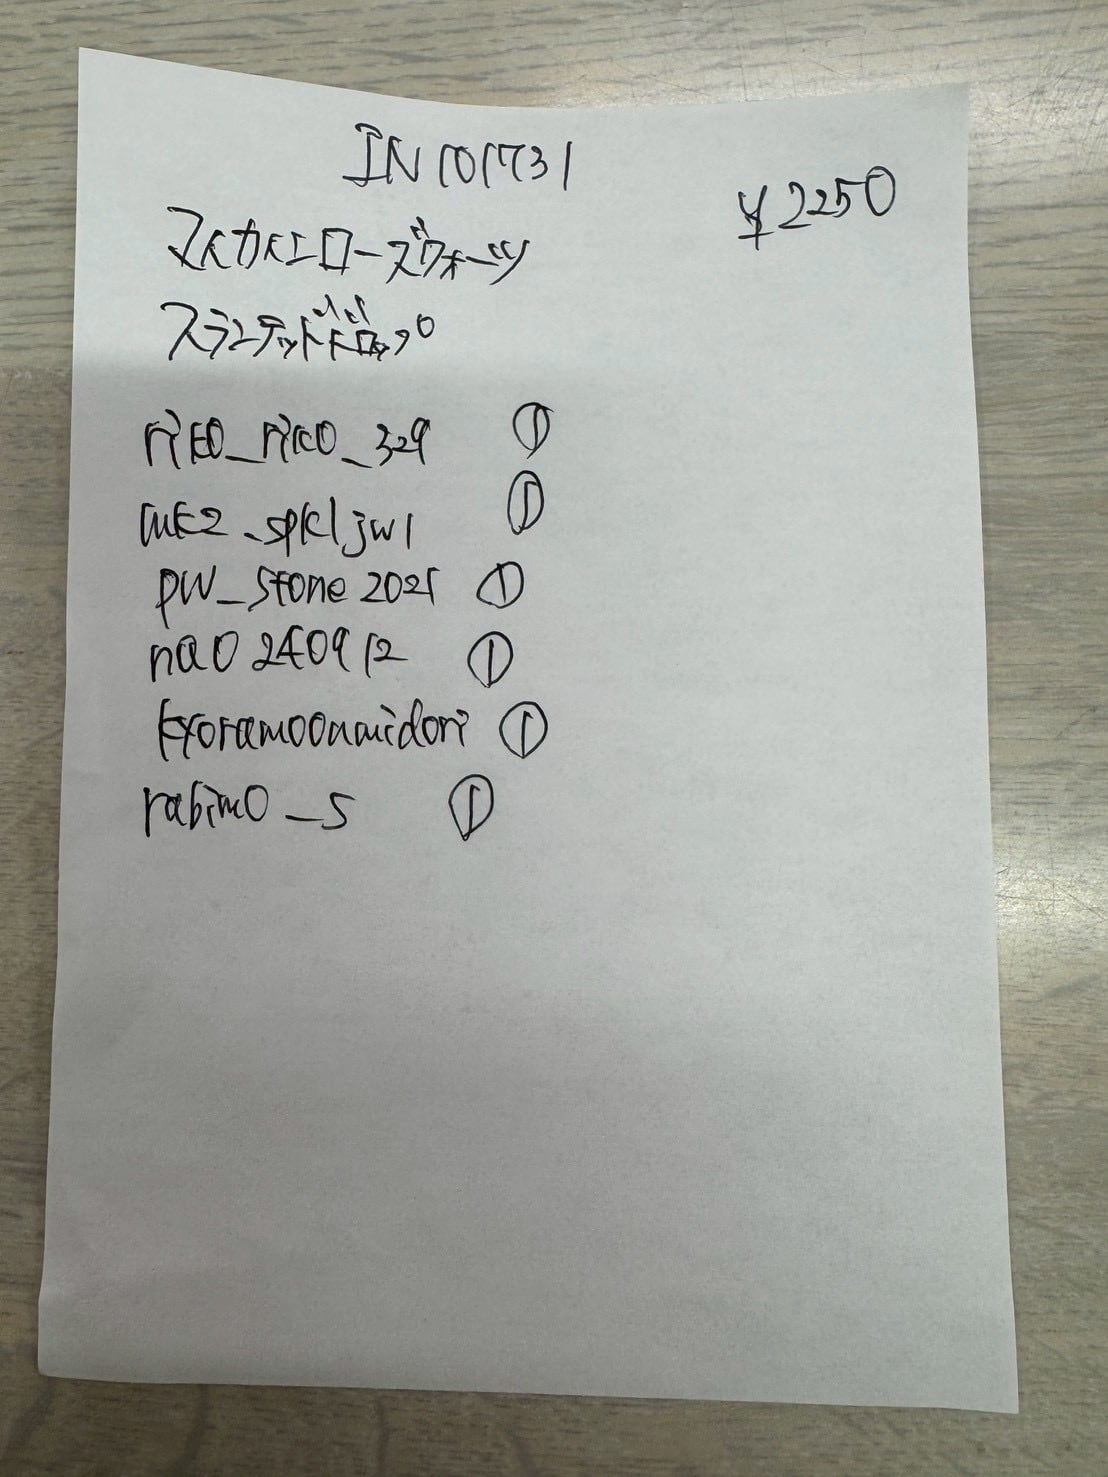 IN101731
¥2250
マイカインローズクォーツ
スランテッドドロップ
riko_rico_329 ①
luk2_spkljw1 ①
pw_stone2021 ①
nao240912 ①
kyoramoonmidori ①
rabimo_s ①